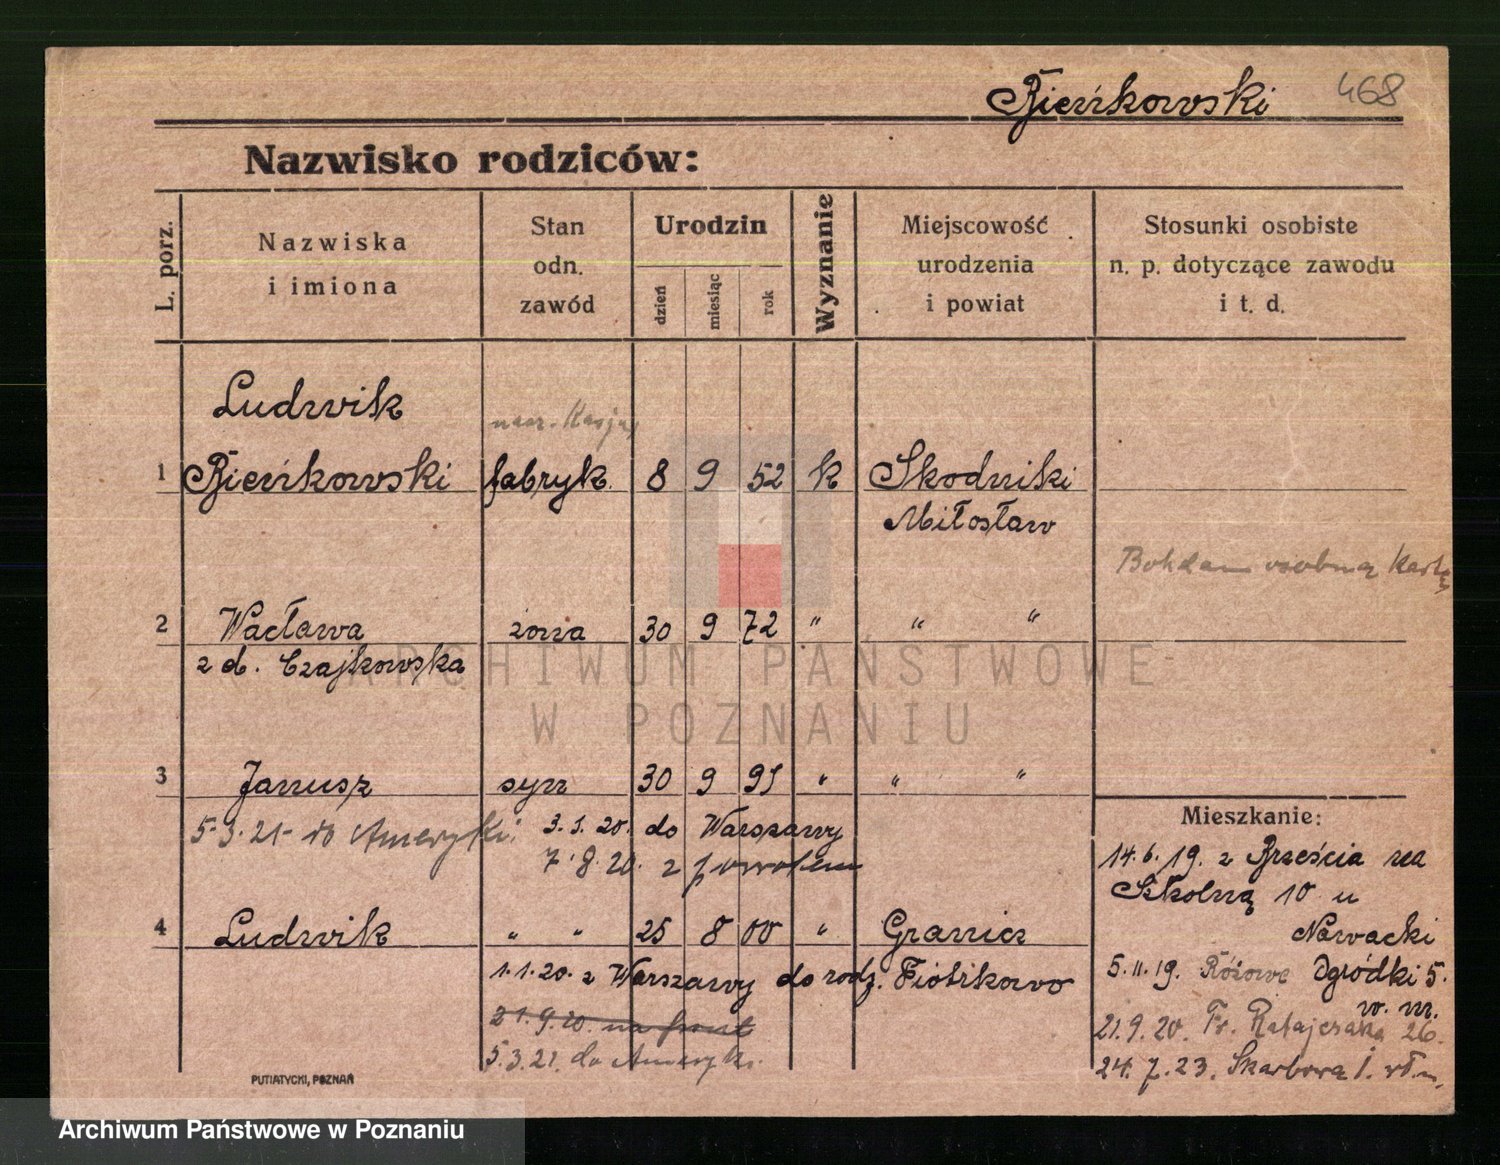 Bieńkowski 468
Nazwisko rodziców:
L. porz.
Nazwiska
i imiona
Stan
odn.
zawód
Urodzin
dzień
miesiąc
rok
Wyznanie
Miejscowość
urodzenia
i powiat
Stosunki osobiste
n. p. dotyczące zawodu
i t. d.
Ludwik
1 Bieńkowski fabryk. 8 9 52 k Skodniki
Miłosław
Bohdan osobną Kartę
2 Wacława żona 30 9 72 " " "
z d. Czajkowska
ARCHIWUM PAŃSTWOWE
W POZNANIU
3 Janusz syn 30 9 95 " " "
5.3.21 do Ameryki. 3.1.20. do Warszawy
7.8.20. z powrotem
4 Ludwik " " 25 8 00 " Granicz
1.1.20. z Warszawy do rodz. Piotrkowo
21.9.20. na front
5.3.21. do Ameryki.
Mieszkanie:
14.6.19. z Brześcia na
Szkolną 10 u
Nowacki
5.11.19. Różowe Ogródki 5.
w. m.
21.9.20. Fr. Ratajczaka 26.
24.7.23. Skarbową 1.
PUTIATYCKI, POZNAŃ
Archiwum Państwowe w Poznaniu